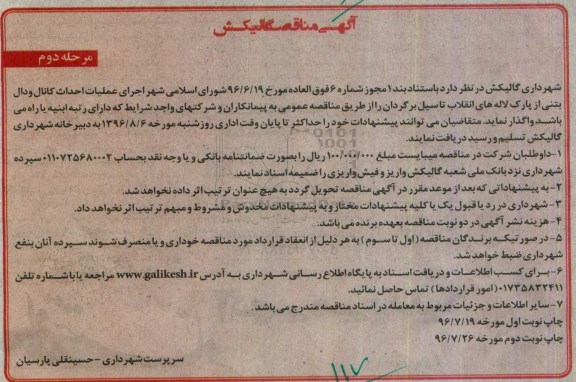 آگهی مناقصه گالیکش
مرحله دوم
شهرداری گالیکش در نظر دارد باستناد بند ۱ مجوز شماره ۶ فوق العاده مورخ ۹۶/۶/۱۹ شورای اسلامی شهر اجرای عملیات احداث کانال ودال
بتنی از پارک لاله های انقلاب تا سیل برگردان را از طریق مناقصه عمومی به پیمانکاران و شرکتهای واجد شرایط که دارای رتبه ابنیه یا راه می
باشد واگذار نماید. متقاضیان می توانند پیشنهادات خود را حداکثر تا پایان وقت اداری روز شنبه مورخه ۱۳۹۶/۸/۶ به دبیرخانه شهرداری
گالیکش تسلیم و رسید دریافت نمایند.
۱- داوطلبان شرکت در مناقصه میبایست مبلغ ۱۰۰/۰۰۰/۰۰۰ ریال را بصورت ضمانتنامه بانکی و یا وجه نقد بحساب ۰۱۱۰۷۲۵۶۸۰۰۰۲ سپرده
شهرداری نزد بانک ملی شعبه گالیکش واریز و فیش واریزی را ضمیمه اسناد نمایند.
۲- به پیشنهاداتی که بعد از موعد مقرر در آگهی مناقصه تحویل گردد به هیچ عنوان ترتیب اثر داده نخواهد شد.
۳- شهرداری در رد یا قبول یک یا کلیه پیشنهادات مختار و به پیشنهادات مخدوش و مشروط و مبهم ترتیب اثر نخواهد داد.
۴- هزینه نشر آگهی در دو نوبت مناقصه بعهده برنده می باشد.
۵- در صورتیکه برندگان مناقصه (اول تا سوم) به هر دلیل از انعقاد قرارداد مورد مناقصه خوداری و یا منصرف شوند سپرده آنان بنفع
شهرداری ضبط خواهد شد.
۶- برای کسب اطلاعات و دریافت اسناد به پایگاه اطلاع رسانی شهرداری به آدرس www.galikesh.ir مراجعه یا با شماره تلفن
۰۱۷۳۵۸۳۲۴۱۱ (امور قراردادها) تماس حاصل نمائید.
۷- سایر اطلاعات و جزئیات مربوط به معامله در اسناد مناقصه مندرج می باشد.
چاپ نوبت اول مورخه ۹۶/۷/۱۹
چاپ نوبت دوم مورخه ۹۶/۷/۲۶
سرپرست شهرداری - حسینقلی پارسیان